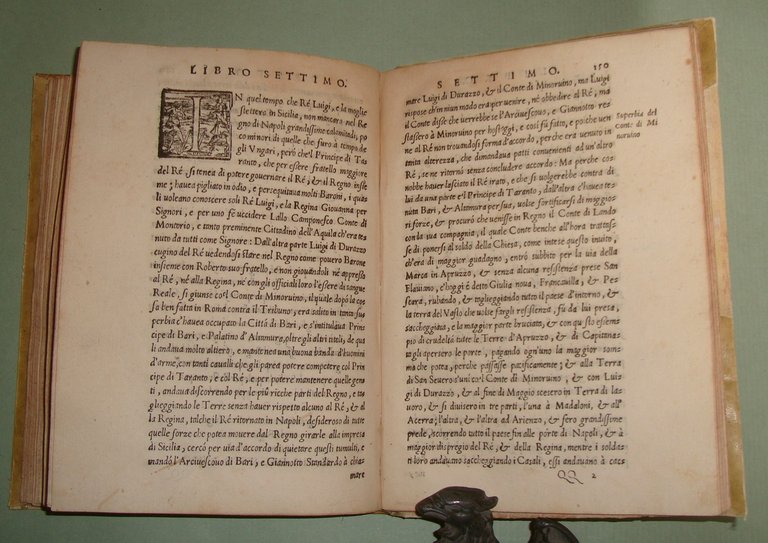 LIBRO SETTIMO.
IN quel tempo che Ré Luigi, e la moglie
stettero in Sicilia, non mancaro nel Re
gno di Napoli grandissime calamitadi, po
co minori di quelle che furo à tempo de
gli Ungari, però che'l Principe di Ta-
ranto, che per essere fratello maggiore
del Ré, si tenea di potere governare il Ré, & il Regno insie
me; havea pigliato in odio, e perseguitava molti Baroni, i qua
li voleano conoscere soli Ré Luigi, e la Regina Giovanna per
Signori, e per uno fè uccidere Lallo Camponesco Conte di
Montorio, e tanto preminente Cittadino dell'Aquila ch'era te-
nuto da tutti come Signore: Dall'altra parte Luigi di Durazzo
cugino del Ré vedendosi stare nel Regno come povero Barone
insieme con Roberto suo fratello, e non giovandoli né appresso
al Ré, né alla Regina, né con gli officiali loro l'essere di sangue
Reale, si giunse col Conte di Minorvino, il quale dopò la co-
sa ben fatta in Roma contra il Tribuno, era salito in tanta su-
perbia c'havea occupato la Città di Bari, e s'intitulava Prin
cipe di Bari, e Palatino d'Altamura, oltre gli altri titoli, de qua
li andava molto altiero, e mantenea una buona banda d'huomini
d'arme, con tanti cavalli che gli parea potere competere col Prin
cipe di Taranto, e col Ré, e per potere mantenere quelle gen-
ti, andava discorrendo per le più ricche parti del Regno, e ta
glieggiando le Terre senza haver rispetto alcuno al Ré, & al
la Regina, talche il Ré ritornato in Napoli, desideroso di tutte
quelle forze che potea movere dal Regno girarle alla impresa
di Sicilia, cercò per via d'accordo di quietare questi tumulti, e
mandò l'Arcivescovo di Bari, e Giannotto Stendardo à chia
mare
SETTIMO. 150
mare Luigi di Durazzo, & il Conte di Minorvino, ma Luigi
rispose ch'in niun modo era per venire, né obbedire al Ré, ma
il Conte disse che verrebbe se l'Arcivescovo, e Giannotto re-
stassero à Minorvino per hostaggi, e così fù fatto, e poiche ven
ne al Ré non trovandosi forma d'accordo, perche era venuto in
tanta alterezza, che dimandava patti convenienti ad un'altro
Ré, se ne ritornò senza concludere accordo: Ma perche co-
nobbe haver lasciato il Ré irato, e che si volgerebbe contra di
lui da una parte e'l Principe di Taranto, dall'altra c'havea te-
nuta Bari, & Altamura per sua, volse fortificarsi di maggio
ri forze, & procurò che venisse in Regno il Conte di Lando
con la sua compagnia, il quale Conte benche all'hora trattas-
se di ponersi al soldo della Chiesa, come intese questo invito,
ch'era di maggior guadagno, entrò subbito per la via della
Marca in Apruzzo, & senza alcuna resistenza prese San
Flaviano, c'hoggi è detto Giulia nova, Francavilla, & Pe
scara, rubando, & taglieggiando tutto il paese d'intorno, &
la terra del Vasto che volse fargli resistenza, fù da lui presa,
saccheggiata, e la maggior parte bruciata, & con questo essem-
pio di crudeltà tutte le Terre d'Apruzzo, & di Capitana-
ta gli apersero le porte, pagando ogn'una la maggior som-
ma che potea, perche passasse pacificamente; & alla Terra
di San Severo s'unì col Conte di Minorvino, & con Lui-
gi di Durazzo, & al fine di Maggio scesero in Terra di la-
voro, & si divisero in tre parti, l'una à Madaloni, & al-
l'Acerra; l'altra, & d'altra ad Arienzo, & fero grandissime
prede, scorrendo tutto il paese fin alle porte di Napoli, & à
maggior dispregio del Ré, & della Regina, mentre i solda-
ti loro andavano saccheggiando i Casali, essi andavano à cac-
QQ 2
Superbia del
Conte di Mi
norvino